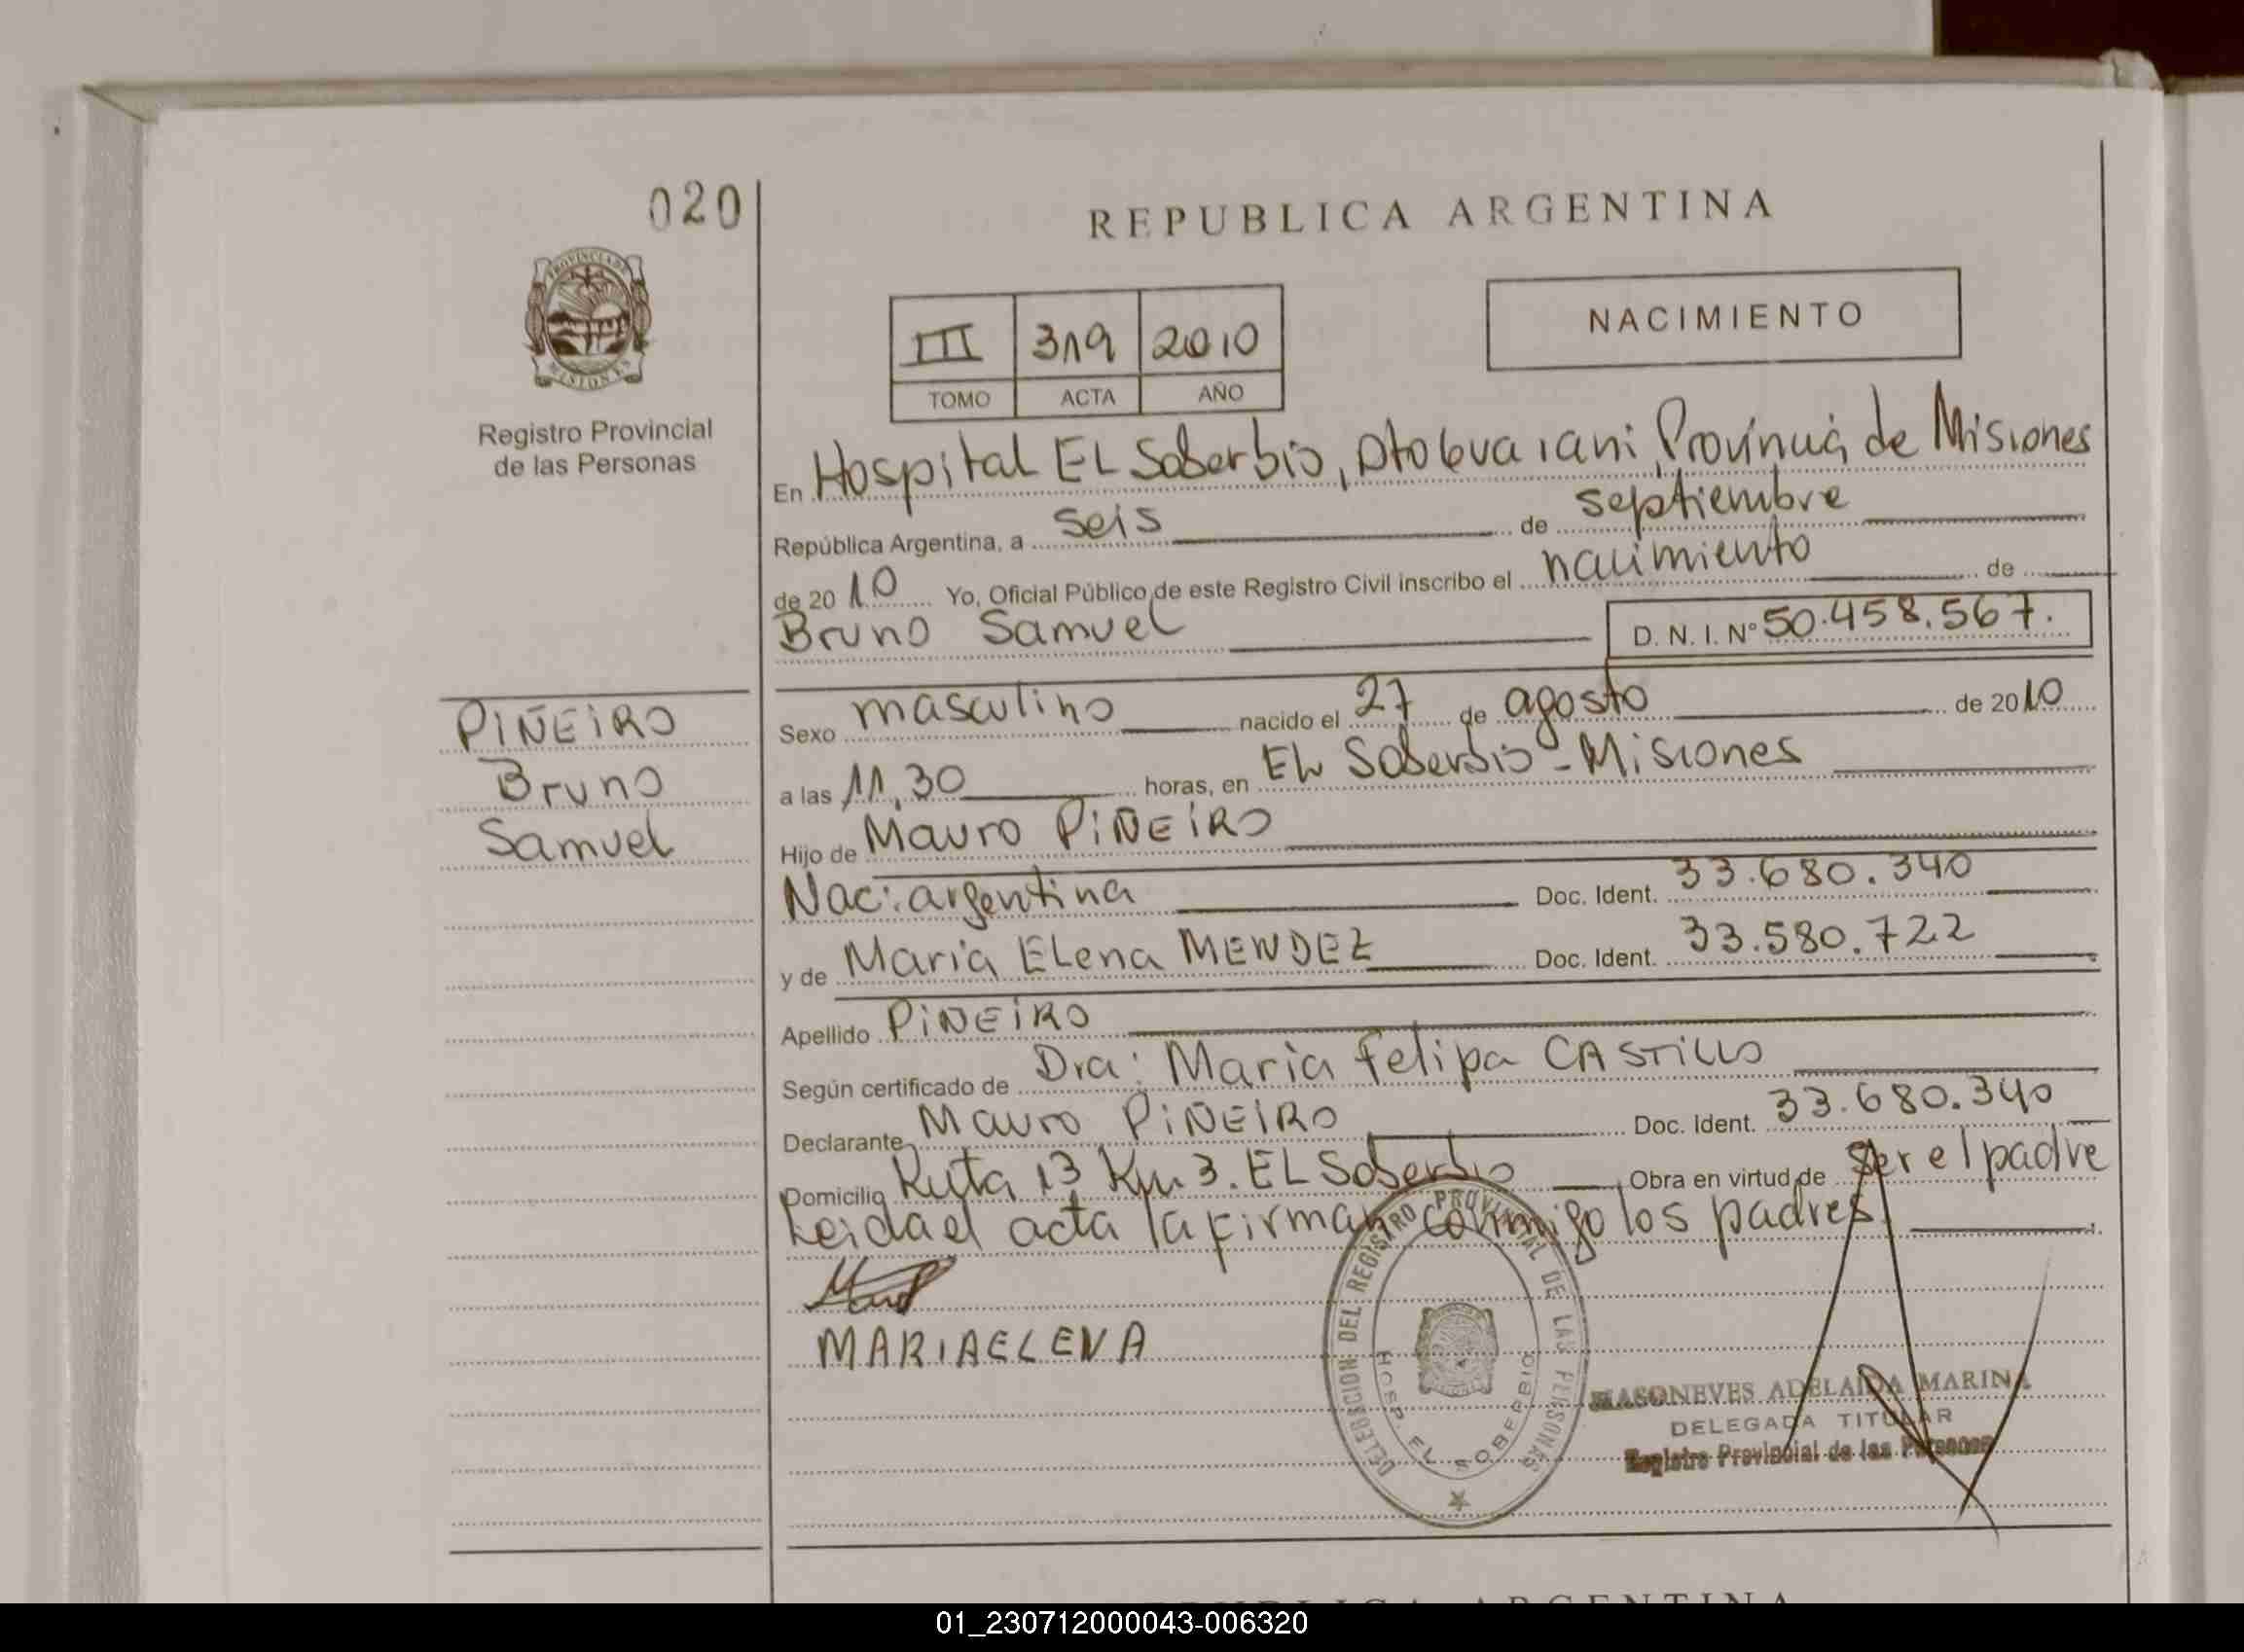 020
REPUBLICA ARGENTINA
PROVINCIA DE
MISIONES
NACIMIENTO
III 319 2010
TOMO ACTA AÑO
Registro Provincial
de las Personas
En Hospital EL Soberbio, Dto Guarani, Provincia de Misiones
República Argentina, a seis de septiembre
de 2010 Yo, Oficial Público de este Registro Civil inscribo el nacimiento de
Bruno Samuel D. N. I. Nº 50.458.567.
PIÑEIRO
Bruno
Samuel
Sexo masculino nacido el 27 de agosto de 2010
a las 11,30 horas, en EL Soberbio - Misiones
Hijo de Mauro PIÑEIRO
Nac: argentina Doc. Ident. 33.680.340
y de Maria ELena MENDEZ Doc. Ident. 33.580.722
Apellido PIÑEIRO
Según certificado de Dra: Maria Felipa CASTILLO
Declarante Mauro PIÑEIRO Doc. Ident. 33.680.340
Domicilio Ruta 13 Km 3. EL Soberbio Obra en virtud de ser el padre
Leida el acta la firman conmigo los padres.
MARIAELENA
DELEGACION DEL REGISTRO PROVINCIAL DE LAS PERSONAS
HOSP. EL SOBERBIO
MASONEVES ADELAIDA MARINA
DELEGADA TITULAR
Registro Provincial de las Personas
REPUBLICA ARGENTINA
01_230712000043-006320